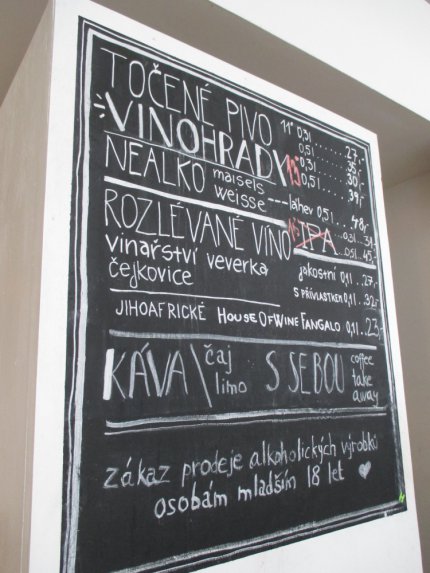 TOČENÉ PIVO
VINOHRADY 11° 0,3l......27,-
0,5l......35,-
13° 0,3l......30,-
0,5l......39,-
NEALKO maisels weisse ---láhev 0,5l..48,-
IPA 0,3l..34,-
0,5l..45,-
ROZLÉVANÉ VÍNO
vinařství veverka
čejkovice
jakostní 0,1l..27,-
S PŘÍVLASTKEM 0,1l..32,-
JIHOAFRICKÉ HOUSE OF WINE FANGALO 0,1l..23,-
KÁVA \ čaj limo S SEBOU coffee take away
zákaz prodeje alkoholických výrobků
osobám mladším 18 let ♥